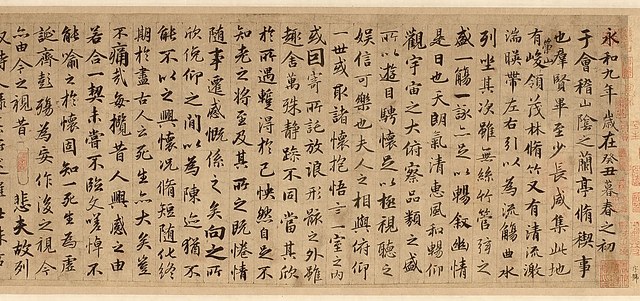 永和九年歲在癸丑暮春之初
于會稽山陰之蘭亭脩稧事
也群賢畢至少長咸集此地
有崇山峻領茂林脩竹又有清流激
湍暎帶左右引以為流觴曲水
列坐其次雖無絲竹管弦之
盛一觴一詠亦足以暢敘幽情
是日也天朗氣清惠風和暢仰
觀宇宙之大俯察品類之盛
所以遊目騁懷足以極視聽之
娛信可樂也夫人之相與俯仰
一世或取諸懷抱悟言一室之內
或因寄所託放浪形骸之外雖
趣舍萬殊靜躁不同當其欣
於所遇暫得於己怏然自足不
知老之將至及其所之既惓情
隨事遷感慨係之矣向之所
欣俛仰之間以為陳迹猶不
能不以之興懷況脩短隨化終
期於盡古人云死生亦大矣豈
不痛哉每攬昔人興感之由
若合一契未嘗不臨文嗟悼不
能喻之於懷固知一死生為虛
誕齊彭殤為妄作後之視今
亦由今之視昔悲夫故列